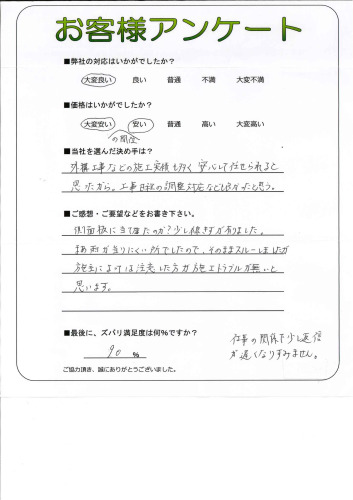 お客様アンケート
■弊社の対応はいかがでしたか？
大変良い 良い 普通 不満 大変不満
■価格はいかがでしたか？
大変安い 安い 普通 高い 大変高い
の間位
■当社を選んだ決め手は？
外構工事などの施工実績も多く安心して任せられると
思ったから。工事日程の調整対応なども良かったと思う。
■ご感想・ご要望などをお書き下さい。
側面板に当て来たのか？少し傷きが有りました。
まあ雨が当りにくい所でしたので、そのままスルーしましたが
施主によっては注意した方が施工トラブルが無いと
思います。
■最後に、ズバリ満足度は何％ですか？
90 ％
仕事の関係で少し返信
が遅くなりすみません。
ご協力頂き、誠にありがとうございました。